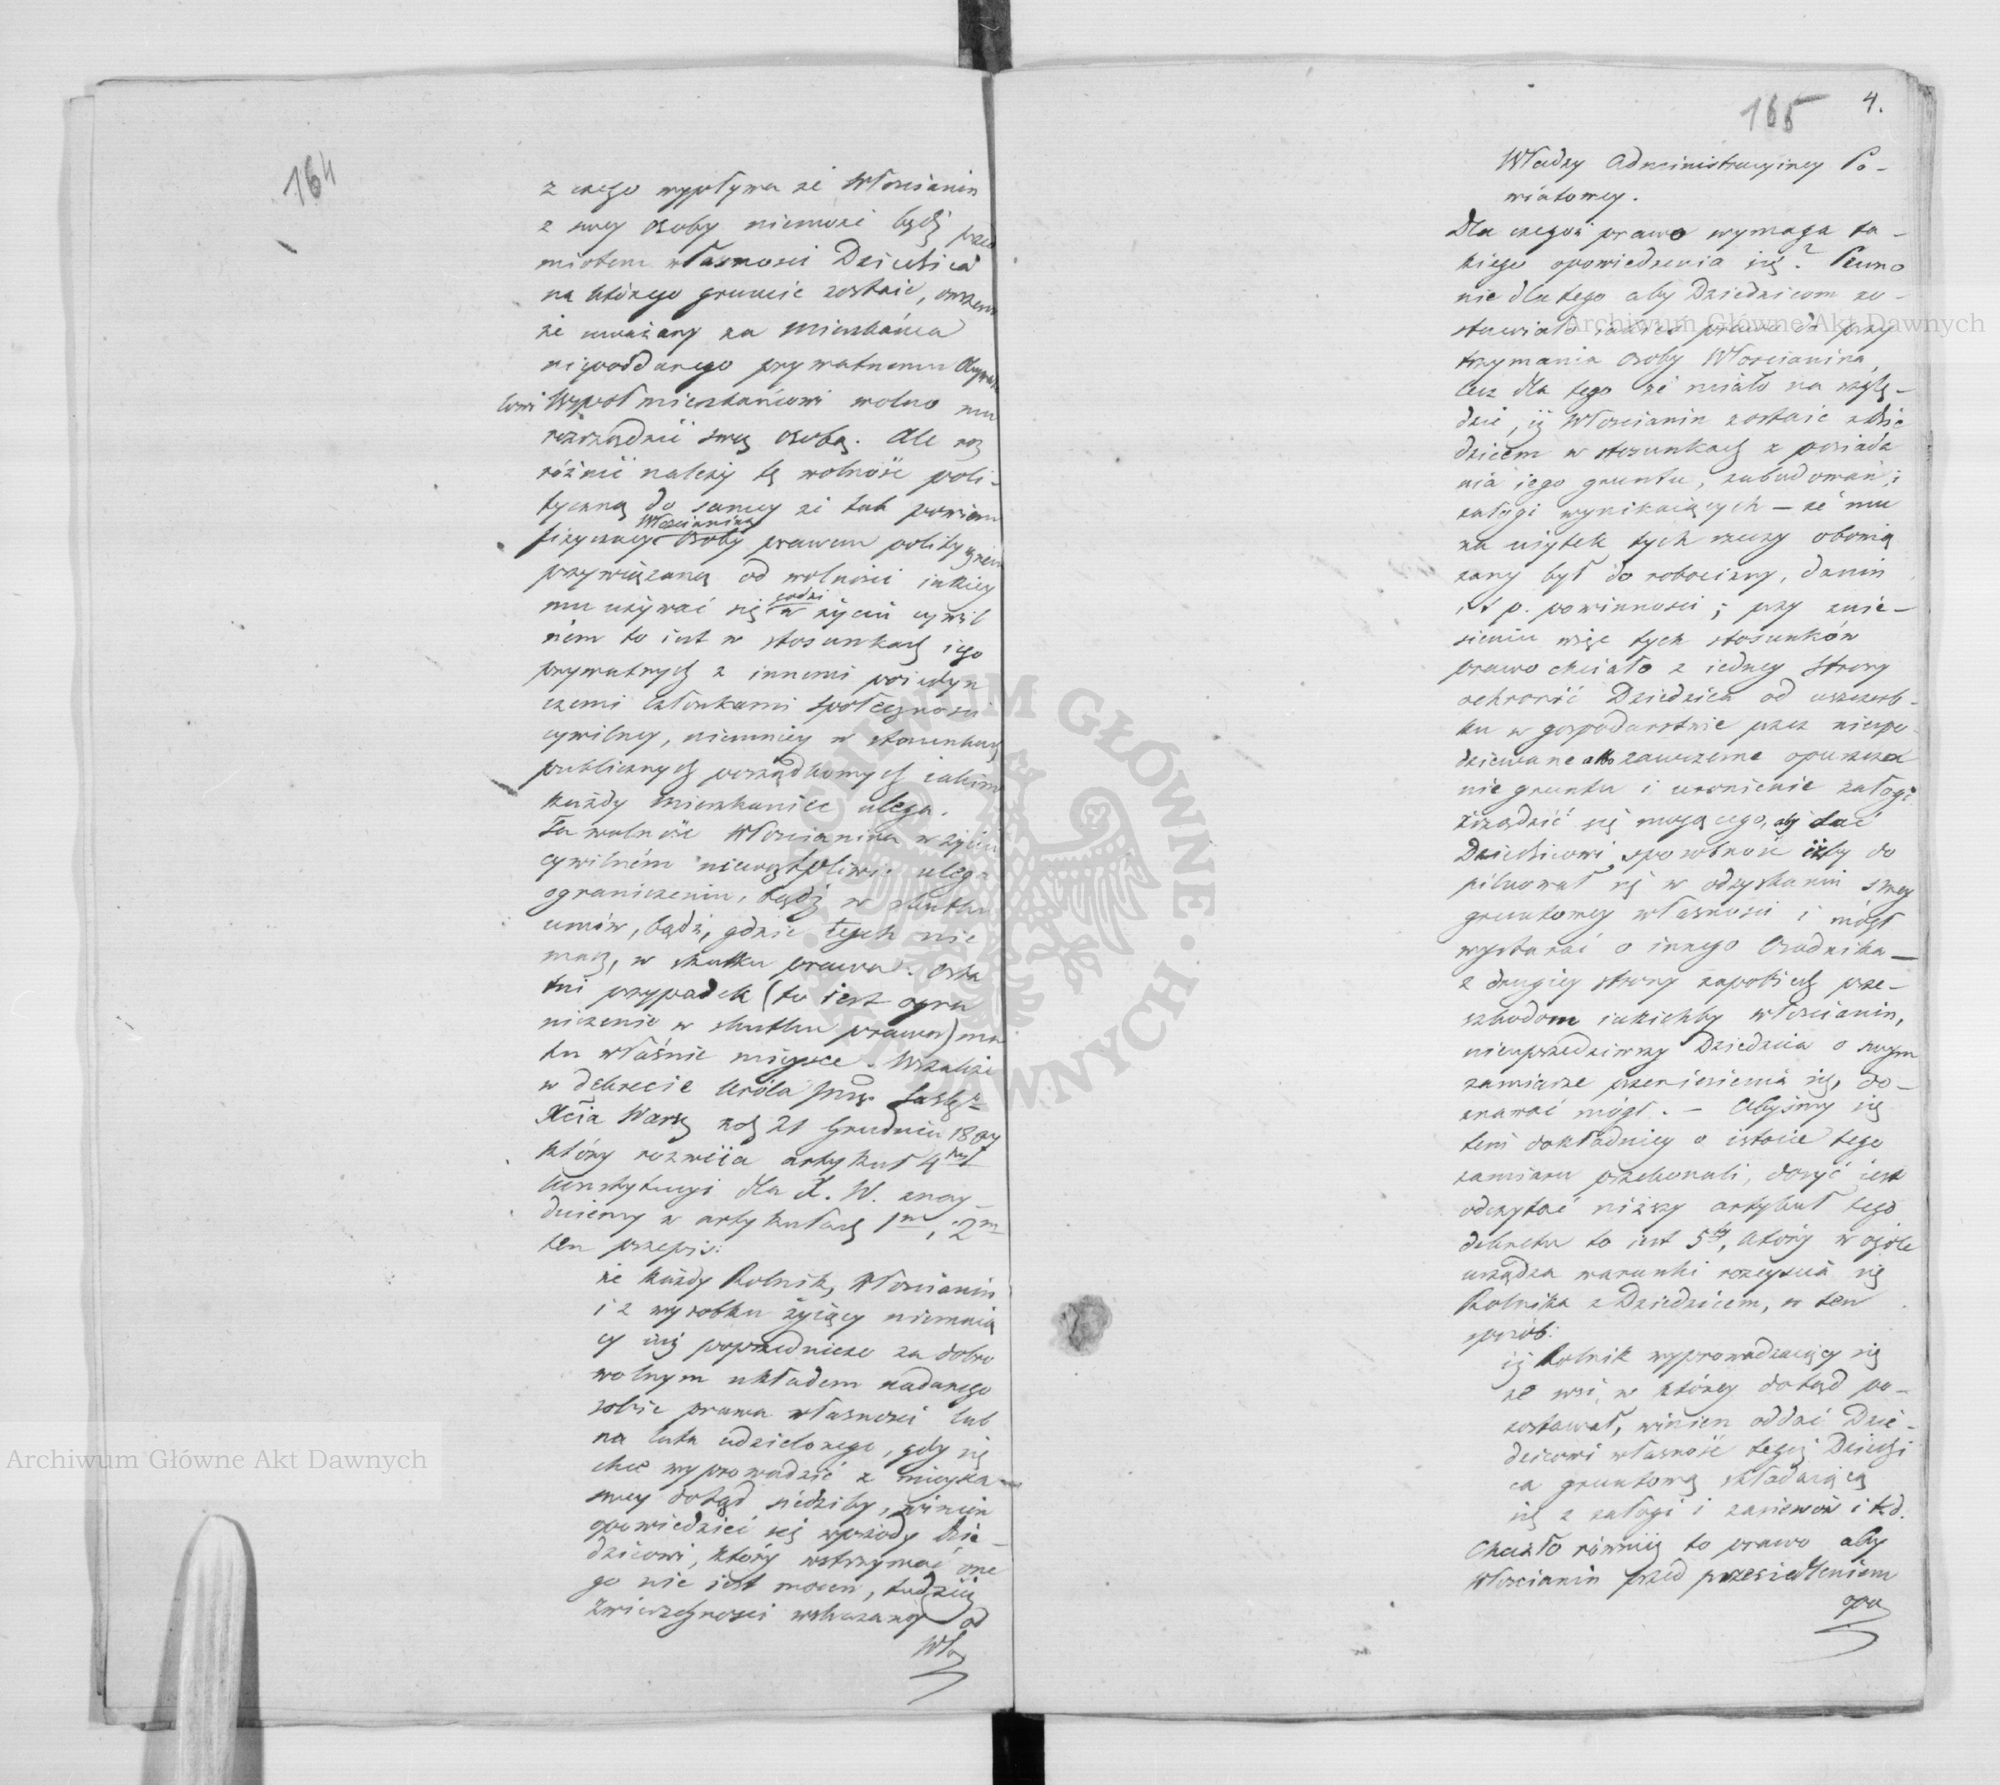 164
z czego wypływa że Włościanin
z swey osoby niemoże bydź przed
miotem własności Dziedzica
na którego gruncie zostaie, owszem
że uważany za Mieszkańca
niepoddanego prywatnemu Obywate
lowi Współmieszkańcowi wolno mu
rozrządzić swą osobą. Ale roz
różnić należy tę wolność poli-
tyczną do samey że tak powiem
fizyczney Włościanina osoby prawem politycznem
przywiązaną od wolności iakiey
mu używać się godzi w życiu cywil
nem to iest w stosunkach iego
prywatnych z innemi poiedyn
czemi członkami społeczności
cywilney, niemniey w stosunkach
publicznych porządkowych iakim
każdy mieszkaniec ulega.
Ta wolność Włościanina w życiu
cywilném niewątpliwie ulega
ograniczeniu, bądź w skutku
umów, bądź, gdzie tych nie
masz, w skutku prawa. Osta
tni przypadek (to iest ogra
niczenie w skutku prawa) ma
tu właśnie mieysce. Wszakże
w dekrecie Króla
Xcia Warsz z d 21 Grudnia 1807
który rozwija artykuł 4ty
Konstytucyi dla X. W. znay
duiemy w artykułach 1m i 2m
ten przepis:
że każdy Rolnik, Włościanin
i z wyrobku żyiący niemaią
cy iuż poprzedniczo za dobro
wolnym układem nadanego
sobie prawa własności lub
na lata udzielonego, gdy się
chce wyprowadzić z mieysca
swey dotąd siedziby, winien
opowiedzieć się wprzódy Dzie-
dzicowi, który wstrzymać one
go nie iest mocen, tudzież
Zwierzchności wskazaney od
Wła
165
4.
Władzy Administracyiney Po-
wiatowey.
Dla czegoż prawo wymaga ta-
kiego opowiedzenia się? Pewno
nie dla tego aby Dziedzicom zo-
stawiało iakieś prawo do przy
trzymania osoby Włościanina,
lecz dla tego że miało na wzglę-
dzie, iż Włościanin zostaie z Dzie
dzicem w stosunkach z posiada
nia iego gruntu, zabudowań, i
załogi wynikaiących – że mu
za użytek tych rzeczy obowią
zany był do robocizny, danin
i t p. powinności; przy znie-
sieniu więc tych stosunków
prawo chciało z iedney strony
ochronić Dziedzica od uszczerb-
ku w gospodarstwie przez niespo-
dziewane albo zawczesne opuszcze
nie gruntu i uronienie załogi
zrządzić się mogącego, aby dać
Dziedzicowi sposobność iżby do
pilnował się w odzyskaniu swey
gruntowey własności i mógł
wystarać o innego Osadnika –
z drugiey strony zapobiedz prze-
szkodom iakichby włościanin,
nieuprzedziwszy Dziedzica o swym
zamiarze przeniesienia się, do-
znawać mógł. – Abyśmy się
tem dokładniey o istocie tego
zamiaru przekonali, dosyć iest
odczytać niższy artykuł tego
dekretu to iest 5ty, który w ogóle
urządza warunki rozeyścia się
Rolnika z Dziedzicem, w ten
sposób:
iż Rolnik wyprowadzaiący się
ze wsi, w którey dotąd po-
zostawał, winien oddać Dzie-
dzicowi własność tegoż Dziedzi
ca gruntową składaiącą
się z załogi i zasiewów i t d.
Chciało również to prawo aby
Włościanin przed przesiedleniem
opo
Archiwum Główne Akt Dawnych
Archiwum Główne Akt Dawnych
ARCHIWUM GŁÓWNE AKT DAWNYCH